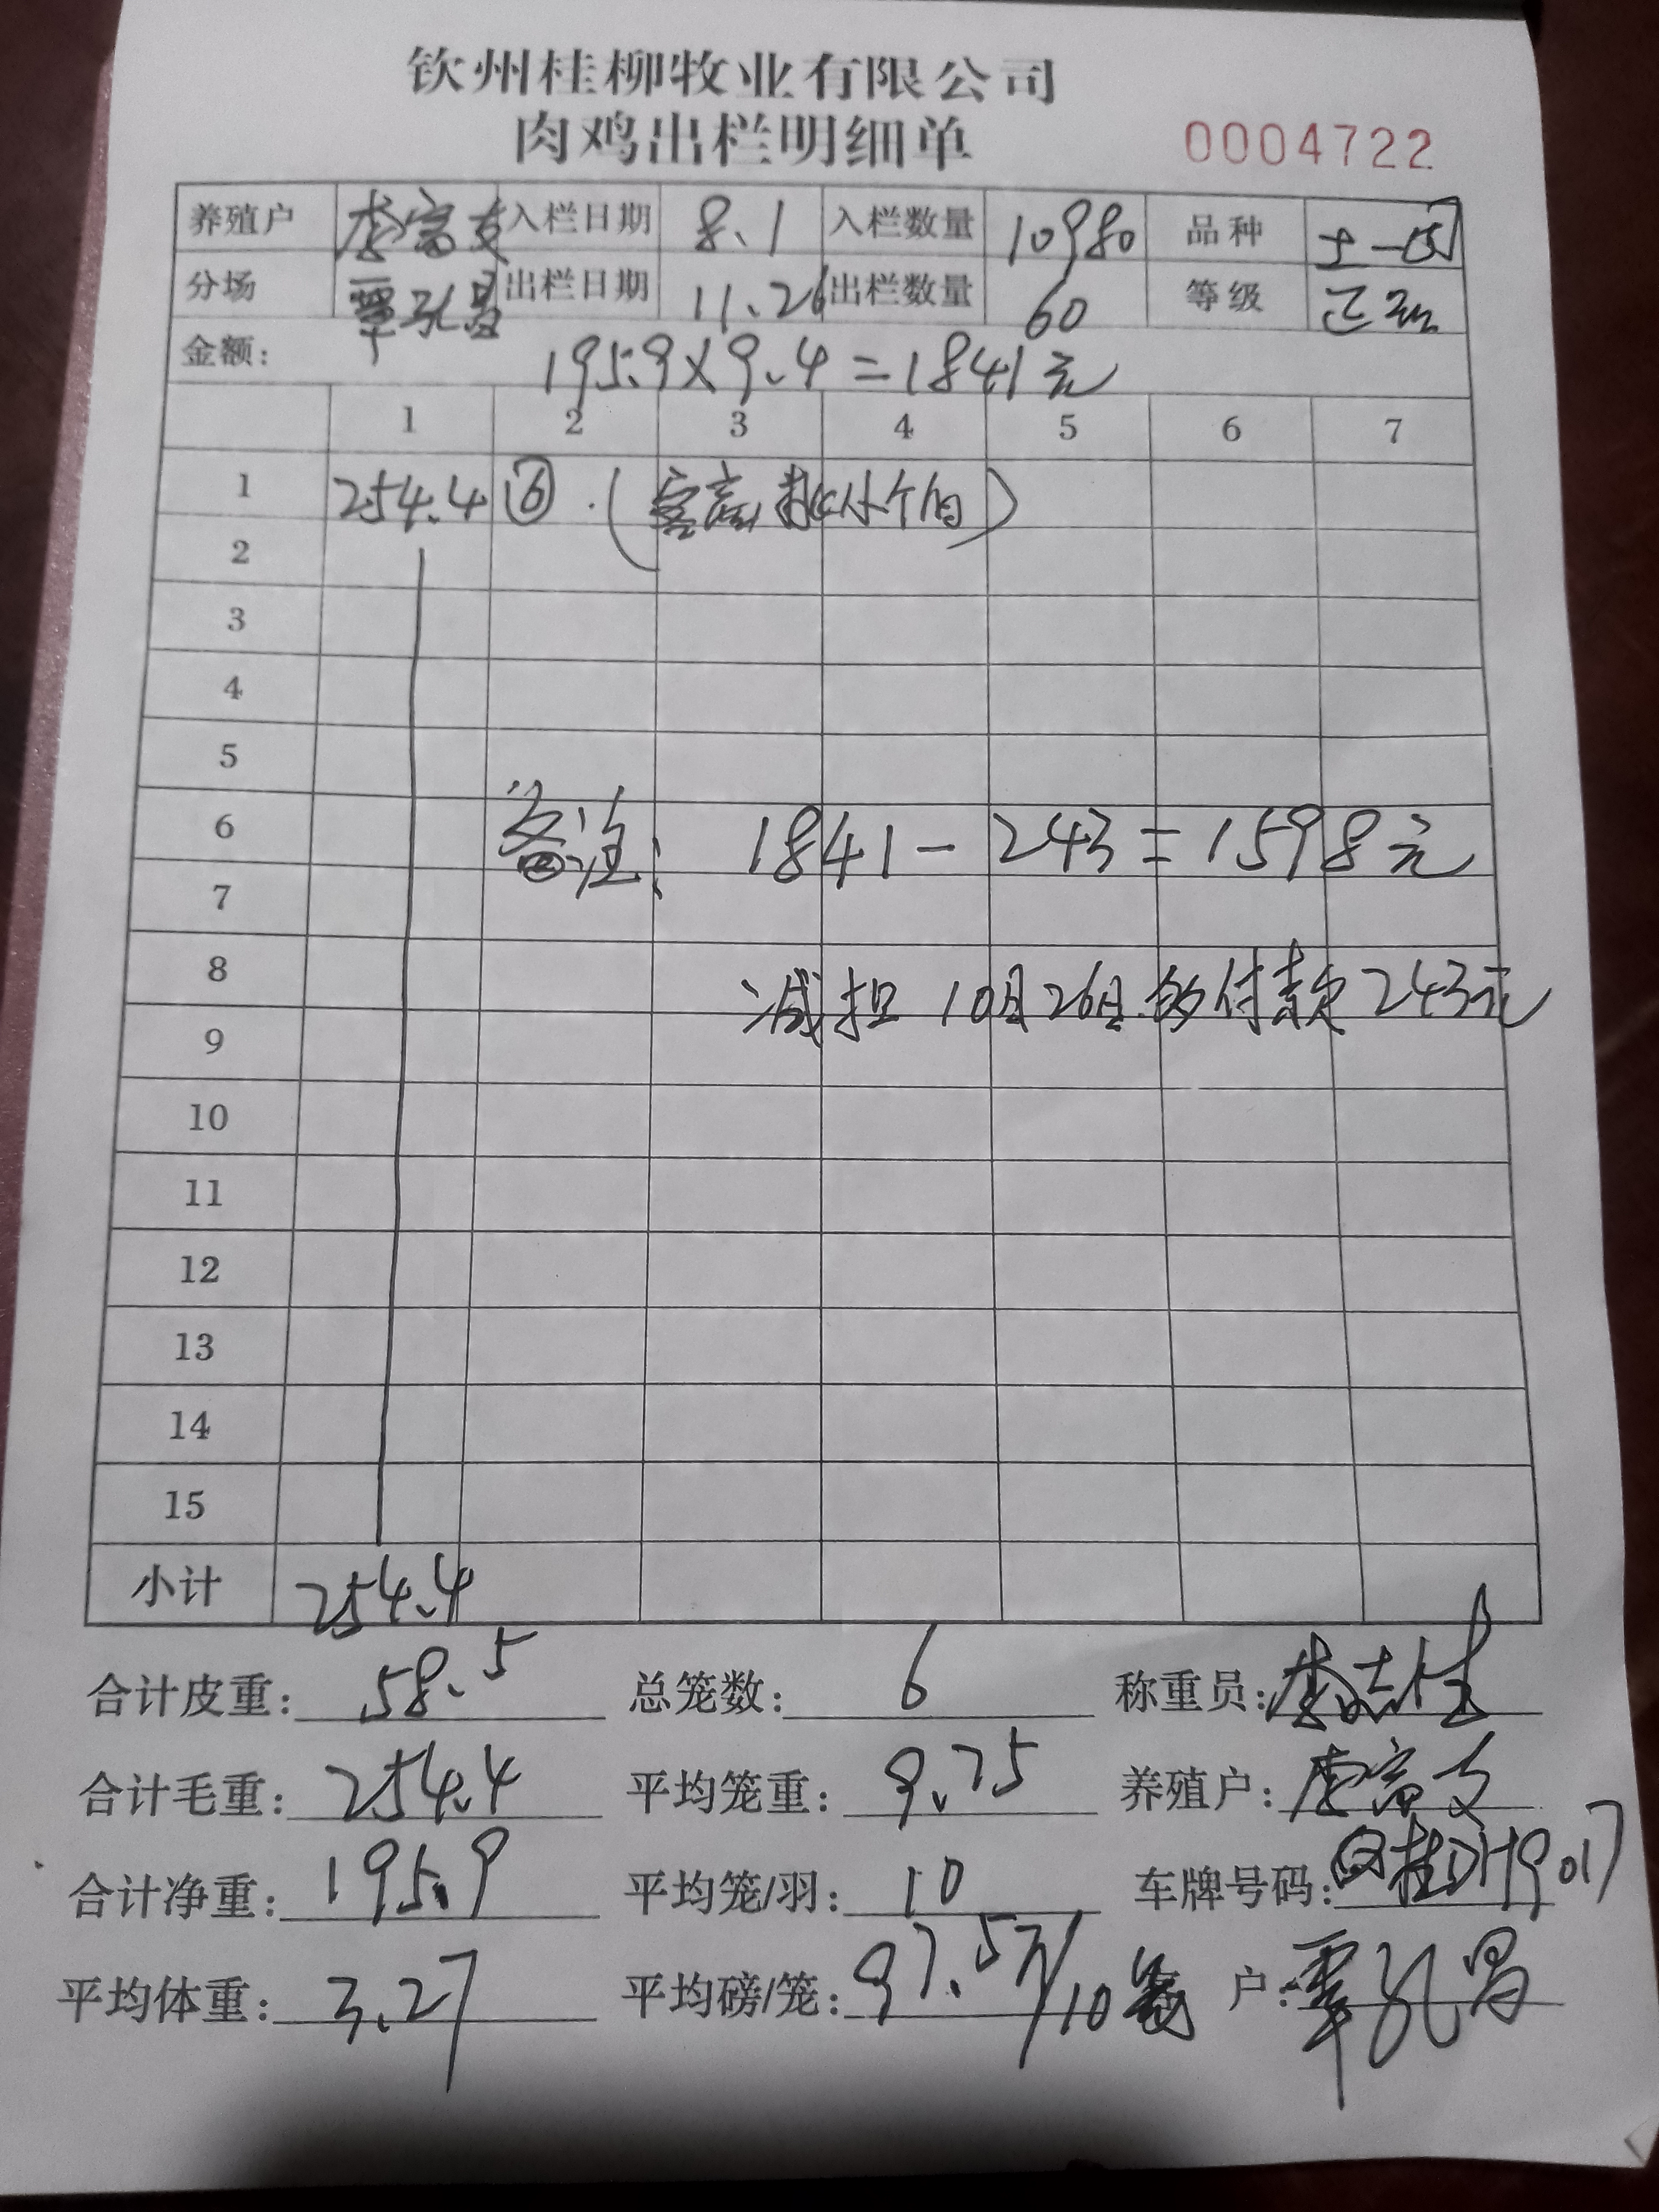 钦州桂柳牧业有限公司
肉鸡出栏明细单 0004722
养殖户 李富文 入栏日期 8.1 入栏数量 10980 品种 土一
分场 覃孔昌 出栏日期 11.26 出栏数量 60 等级 正品
金额: 195.9×9.4=1841元
1 2 3 4 5 6 7
1 254.4 ⑥ (客户 挑 小个的)
2
3
4
5
6 备注: 1841-243=1598元
7
8 减扣 10月26日的付款243元
9
10
11
12
13
14
15
小计 254.4
合计皮重: 58.5 总笼数: 6 称重员: 李志
合计毛重: 254.4 平均笼重: 9.75 养殖户: 李富文
合计净重: 195.9 平均笼/羽: 10 车牌号码: 桂DH9017
平均体重: 3.27 平均磅/笼: 97.5 /10 户: 覃孔昌